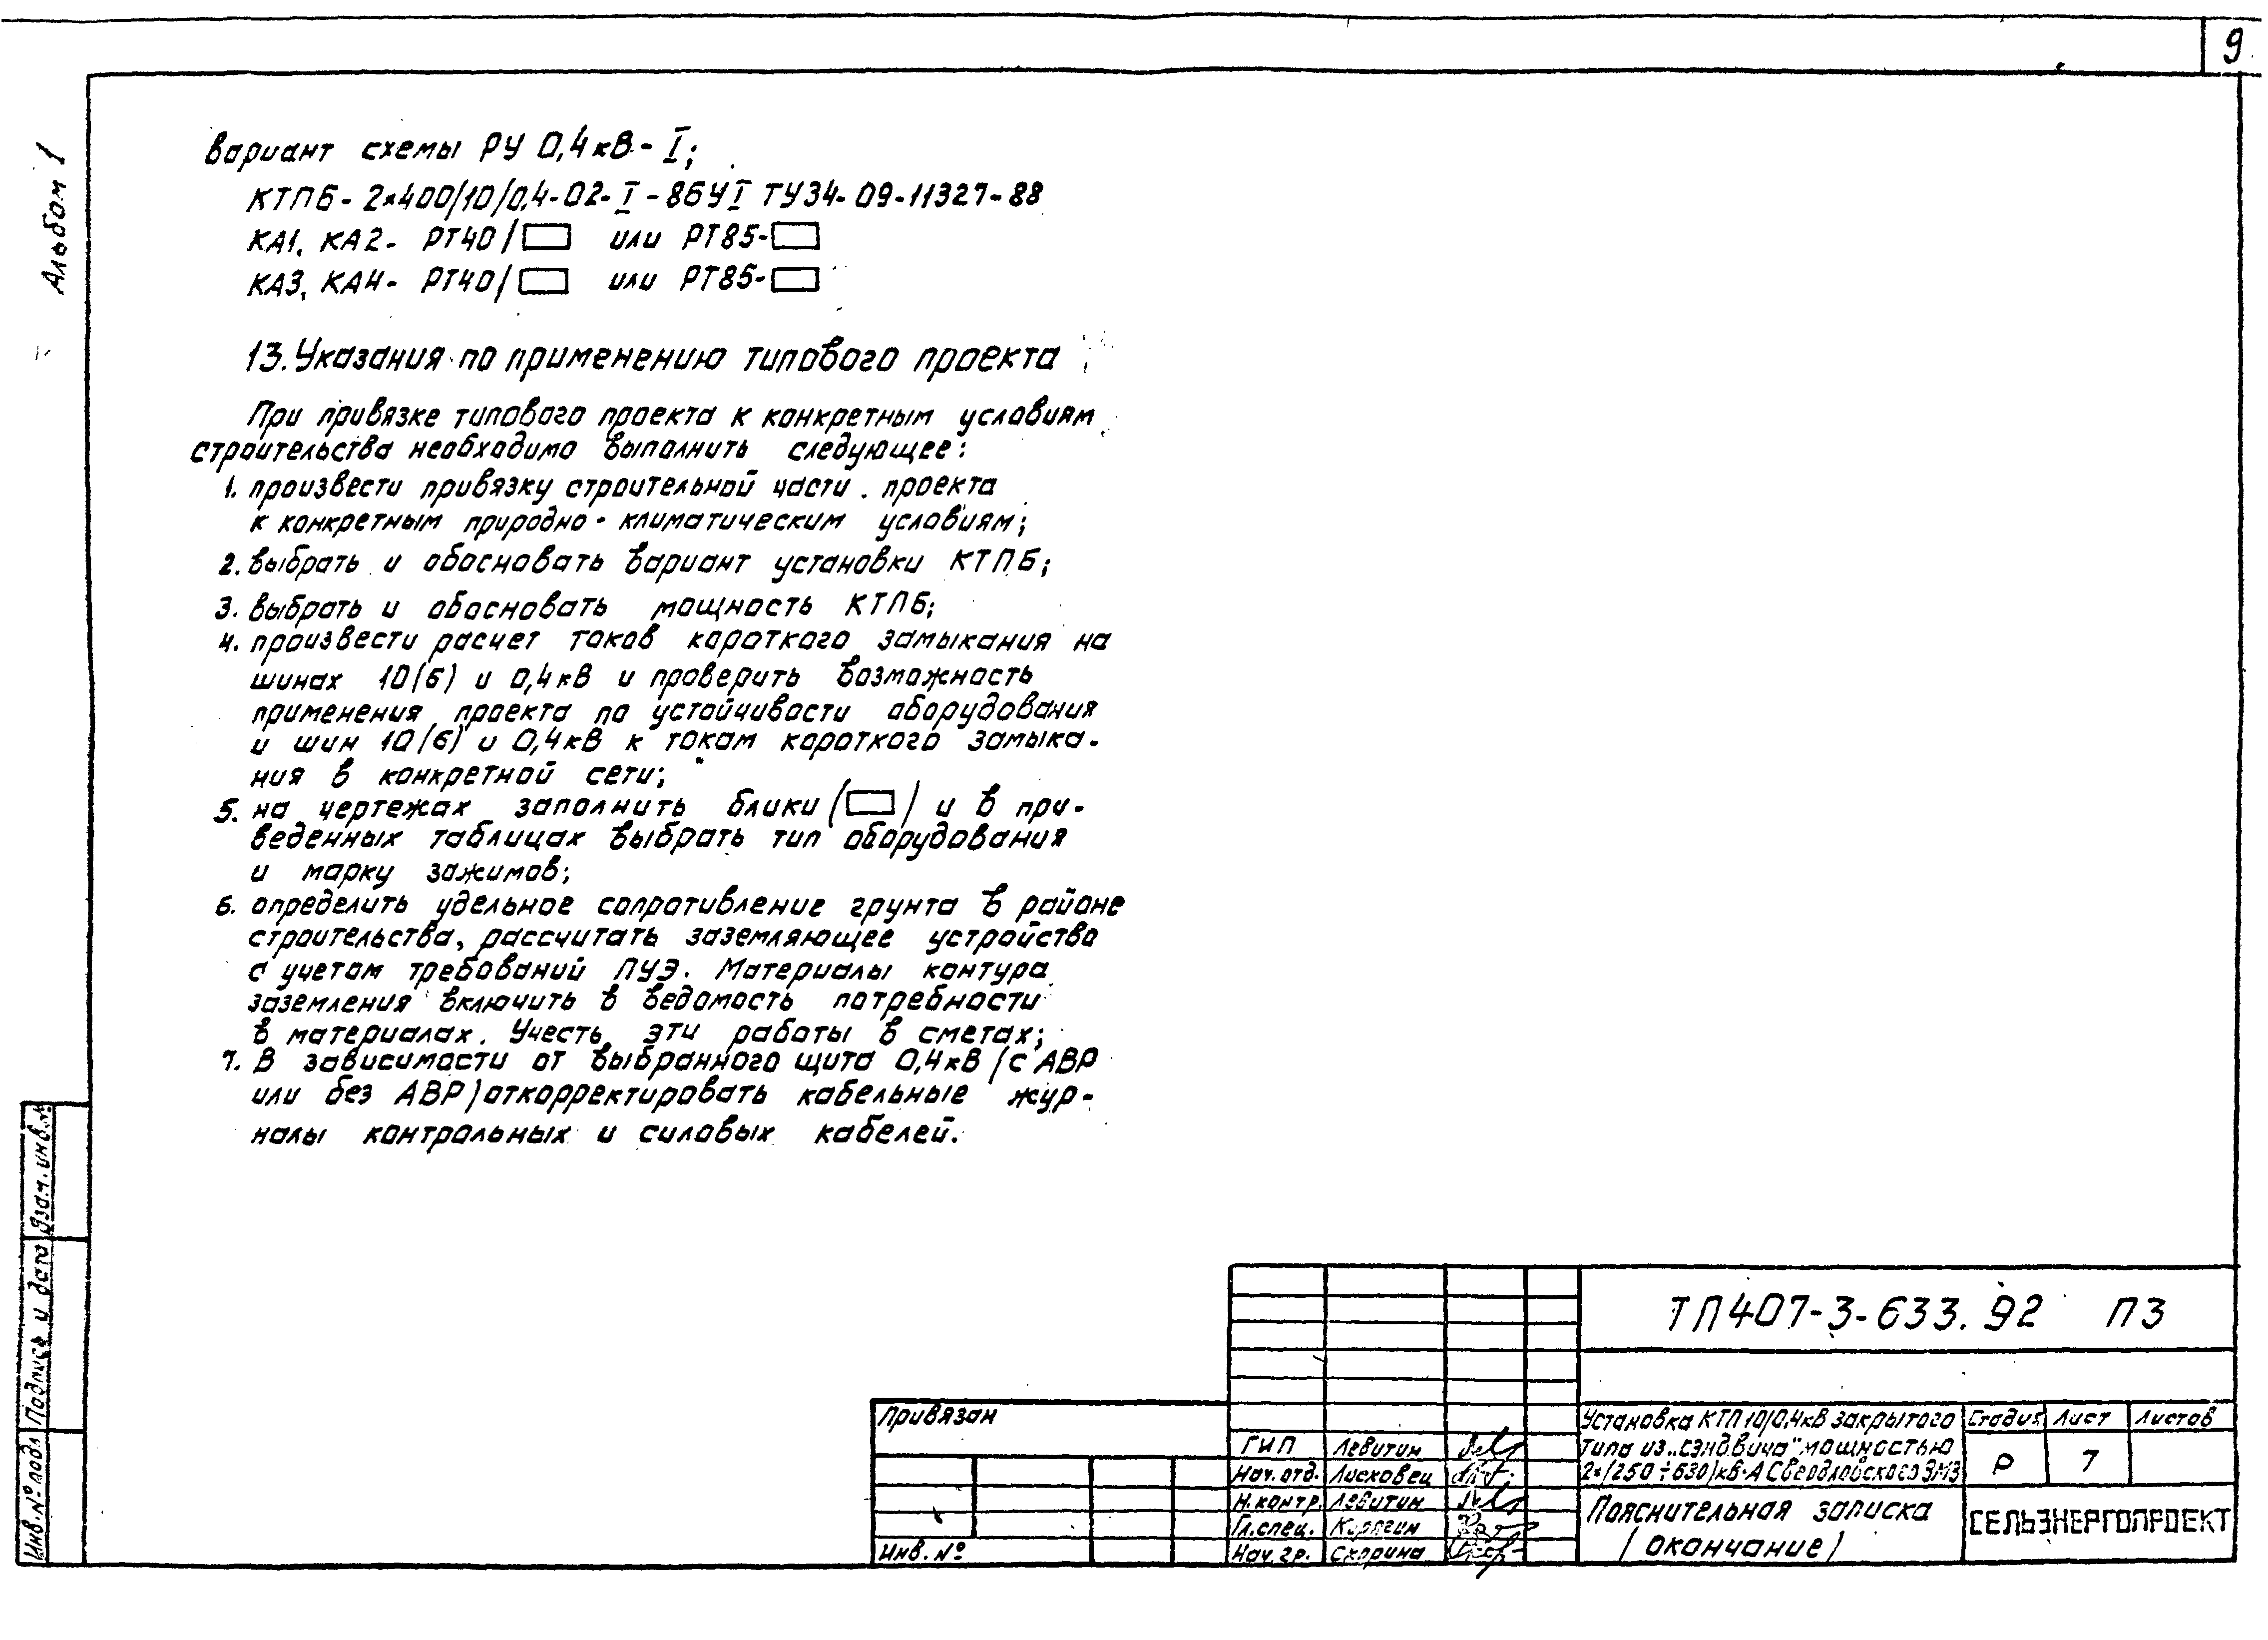 9
Альбом 1
вариант схемы РУ 0,4кВ- I;
КТПБ- 2×400/10/0,4-02- I -86У I ТУ34- 09-11327-88
КА1, КА2- РТ40/▭ или РТ85-▭
КА3, КА4- РТ40/▭ или РТ85-▭
13. Указания по применению типового проекта
При привязке типового проекта к конкретным условиям
строительства необходимо выполнить следующее:
1. произвести привязку строительной части проекта
к конкретным природно-климатическим условиям;
2. выбрать и обосновать вариант установки КТПБ;
3. выбрать и обосновать мощность КТПБ;
4. произвести расчет токов короткого замыкания на
шинах 10(6) и 0,4кВ и проверить возможность
применения проекта по устойчивости оборудования
и шин 10(6) и 0,4кВ к токам короткого замыка-
ния в конкретной сети;
5. на чертежах заполнить блики (▭) и в при-
веденных таблицах выбрать тип оборудования
и марку зажимов;
6. определить удельное сопротивление грунта в районе
строительства, рассчитать заземляющее устройство
с учетом требований ПУЭ. Материалы контура
заземления включить в ведомость потребности
в материалах. Учесть эти работы в сметах;
7. В зависимости от выбранного щита 0,4кВ (с АВР
или без АВР) откорректировать кабельные жур-
налы контрольных и силовых кабелей.
Взам. инв. №
Подпись и дата
Инв. № подл
Привязан
Инв. №
ГИП Левитин
Нач. отд. Лисковец
Н. контр. Левитин
Гл. спец. Карягин
Нач. гр. Скорина
ТП 407-3-633.92 ПЗ
Установка КТП 10/0,4кВ закрытого
типа из „сэндвича" мощностью
2×(250÷630)кВ·А Свердловского ЭМЗ
Стадия Лист Листов
Р 7
Пояснительная записка
(окончание)
СЕЛЬЭНЕРГОПРОЕКТ